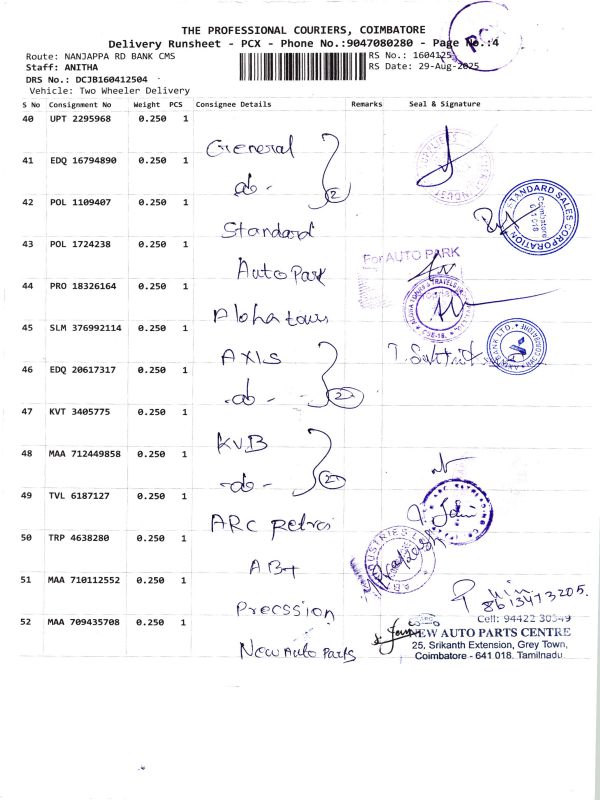 THE PROFESSIONAL COURIERS, COIMBATORE
Delivery Runsheet - PCX - Phone No.:9047080280 - Page No.:4
Route: NANJAPPA RD BANK CMS
Staff: ANITHA
DRS No.: DCJB160412504
Vehicle: Two Wheeler Delivery
RS No.: 1604125
RS Date: 29-Aug-2025
S No Consignment No Weight PCS Consignee Details Remarks Seal & Signature
40 UPT 2295968 0.250 1 General
41 EDQ 16794890 0.250 1 -do- 2
42 POL 1109407 0.250 1 Standard
STANDARD SALES CORPORATION
Coimbatore
43 POL 1724238 0.250 1 Auto Park
For AUTO PARK
44 PRO 18326164 0.250 1 Aloha tours
45 SLM 376992114 0.250 1 AXIS
46 EDQ 20617317 0.250 1 -do- 2
47 KVT 3405775 0.250 1 KVB
48 MAA 712449858 0.250 1 -do- 2
49 TVL 6187127 0.250 1 ARC Retrei
50 TRP 4638280 0.250 1 ABT
51 MAA 710112552 0.250 1 Precssion
8613473205.
52 MAA 709435708 0.250 1 New Auto Parts
Cell: 94422 30549
NEW AUTO PARTS CENTRE
25, Srikanth Extension, Grey Town,
Coimbatore - 641 018. Tamilnadu.